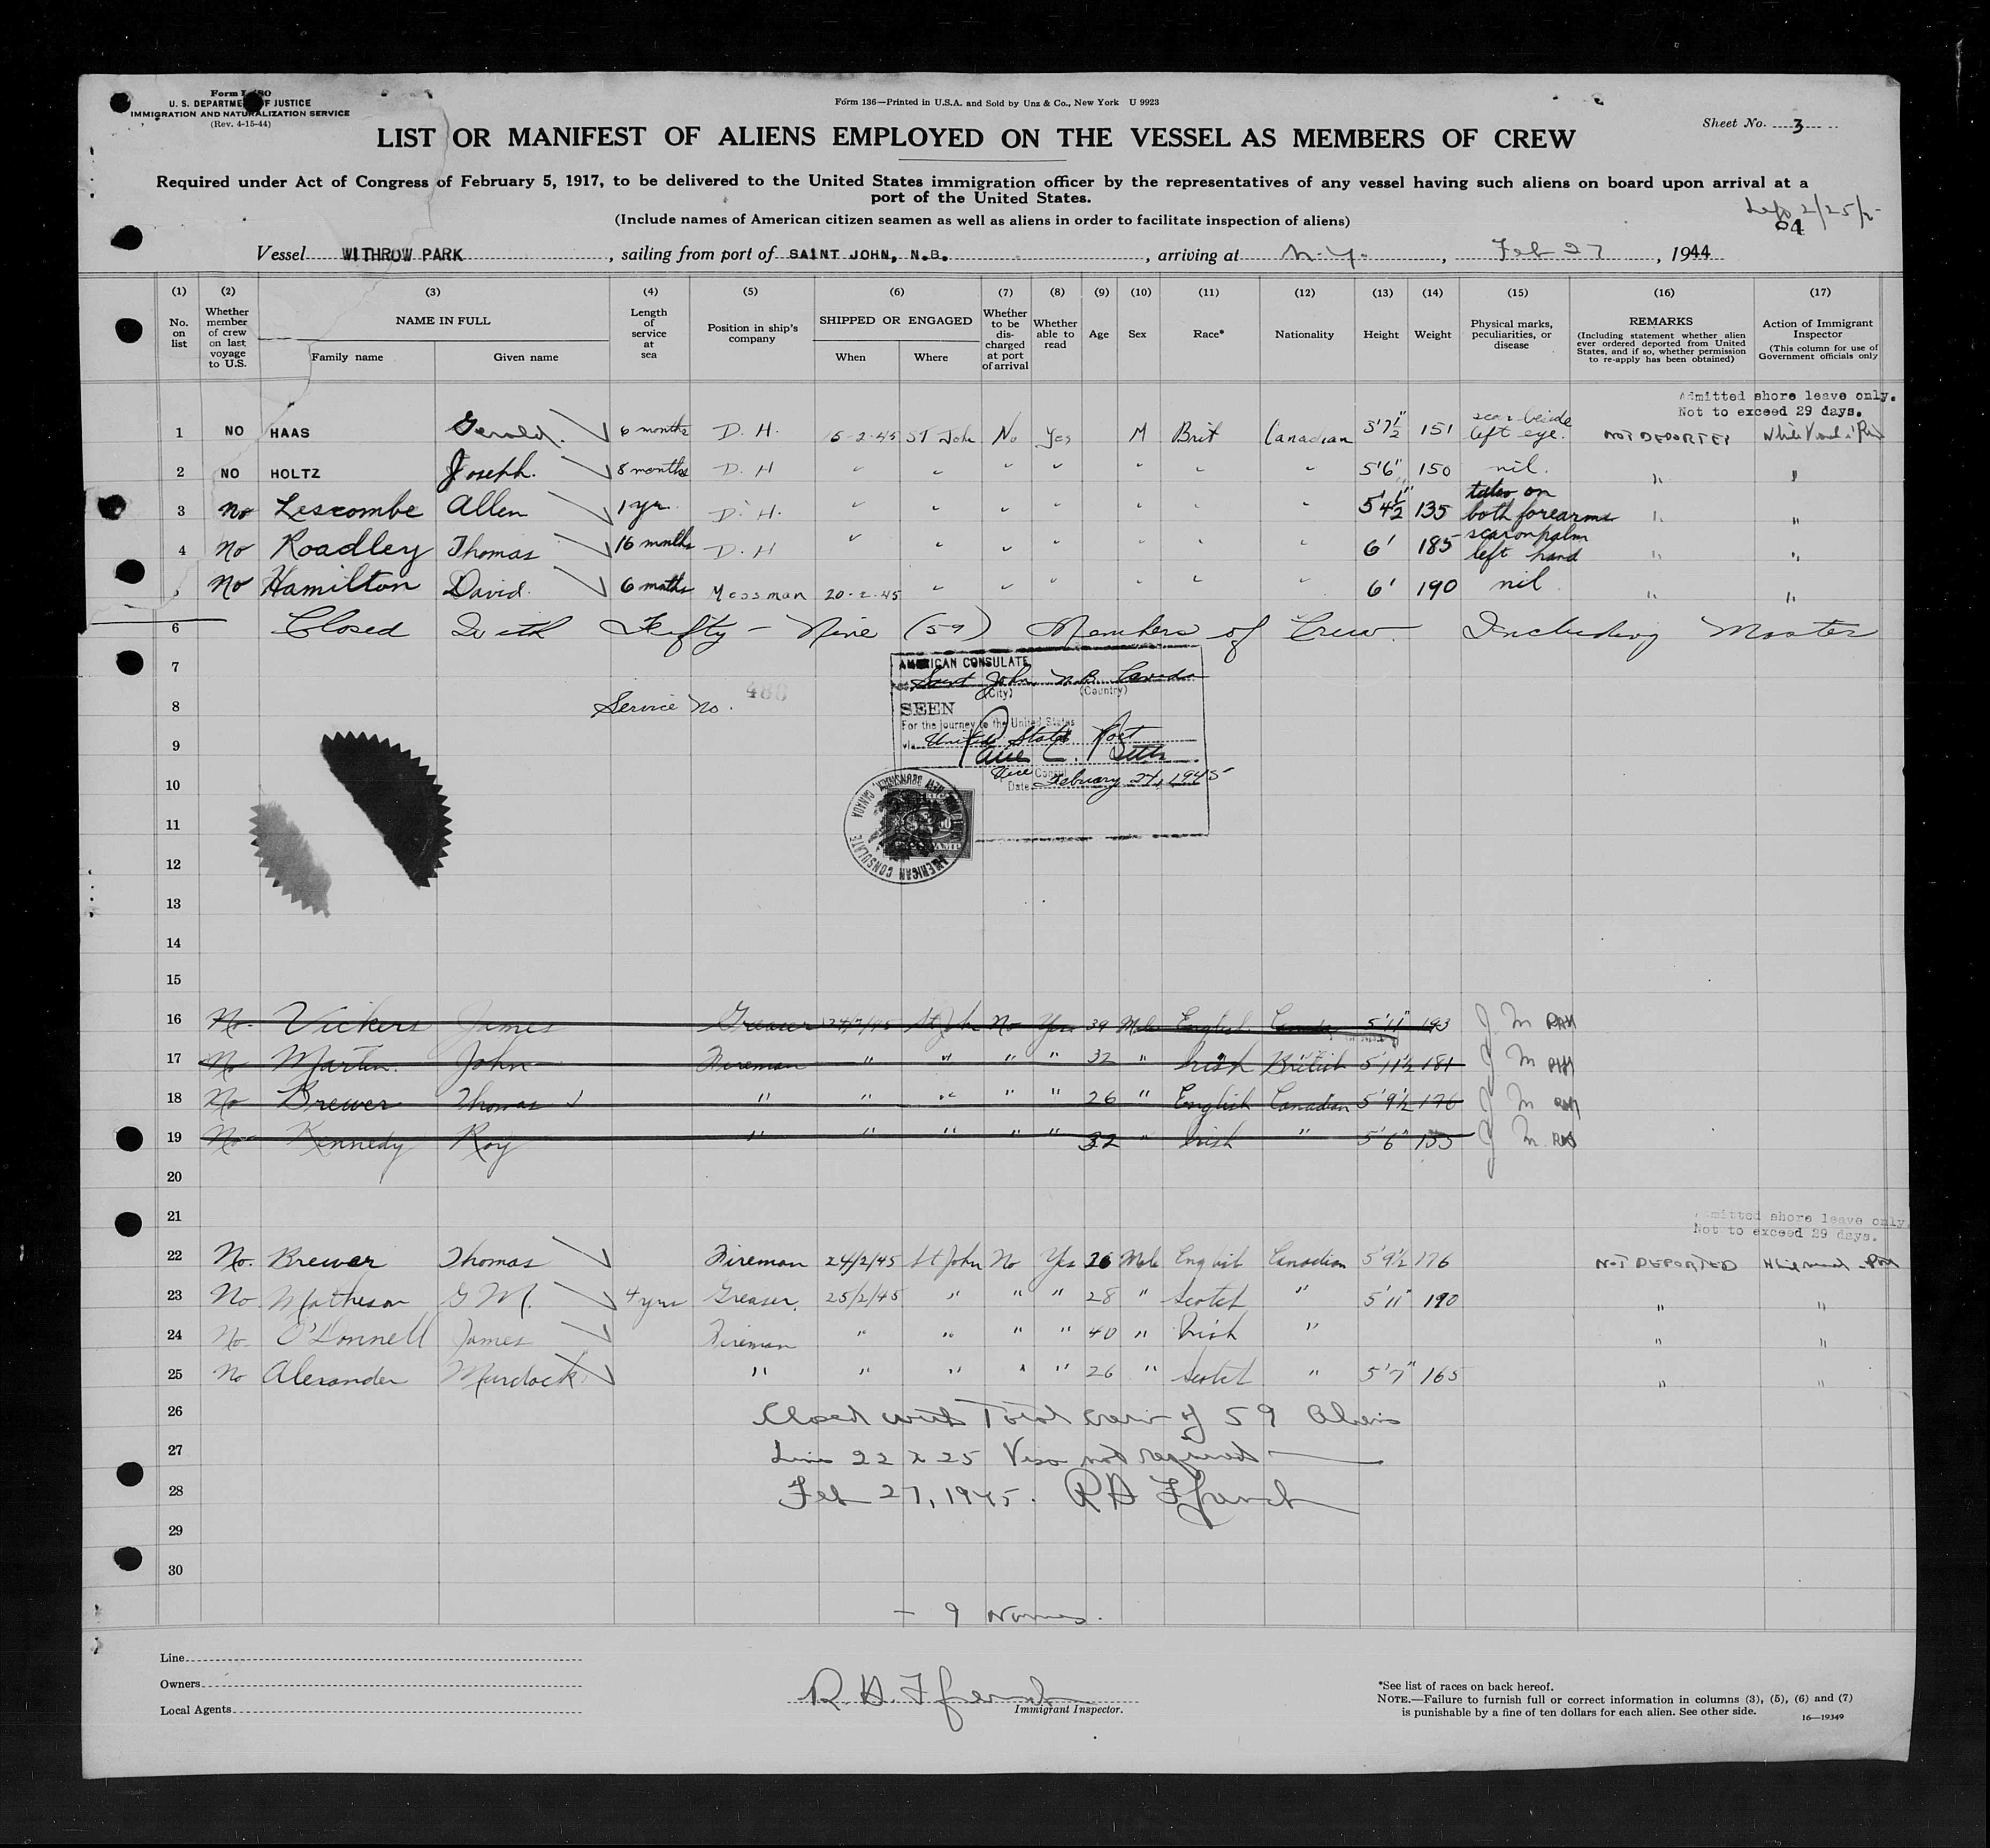 Form I-480
U. S. DEPARTMENT OF JUSTICE
IMMIGRATION AND NATURALIZATION SERVICE
(Rev. 4-15-44)
Form 136—Printed in U.S.A. and Sold by Unz & Co., New York U 9923
Sheet No. 3
LIST OR MANIFEST OF ALIENS EMPLOYED ON THE VESSEL AS MEMBERS OF CREW
Required under Act of Congress of February 5, 1917, to be delivered to the United States immigration officer by the representatives of any vessel having such aliens on board upon arrival at a
port of the United States.
(Include names of American citizen seamen as well as aliens in order to facilitate inspection of aliens)
Vessel WITHROW PARK, sailing from port of SAINT JOHN, N.B., arriving at N.Y., Feb 27, 1944
(1) (2) (3) (4) (5) (6) (7) (8) (9) (10) (11) (12) (13) (14) (15) (16) (17)
No. on list
Whether member of crew on last voyage to U.S.
NAME IN FULL
Family name
Given name
Length of service at sea
Position in ship's company
SHIPPED OR ENGAGED
When
Where
Whether to be discharged at port of arrival
Whether able to read
Age
Sex
Race*
Nationality
Height
Weight
Physical marks, peculiarities, or disease
REMARKS
(Including statement whether alien ever ordered deported from United States, and if so, whether permission to re-apply has been obtained)
Action of Immigrant Inspector
(This column for use of Government officials only
Admitted shore leave only.
Not to exceed 29 days.
1 NO HAAS Gerald. 6 months D. H. 15-2-45 ST John No Yes M Brit Canadian 5'7½" 151 scar beside left eye. NOT DEPORTED
2 NO HOLTZ Joseph. 8 months D. H " " " " " " " 5'6" 150 nil. " "
3 No Lescombe Allen 1 yr. D. H. " " " " " " " 5'4½" 135 tatoo on both forearms " "
4 No Roadley Thomas 16 months D. H " " " " " " " 6' 185 scar on palm left hand " "
No Hamilton David. 6 mnths Messman 20-2-45 " " " " " " 6' 190 nil " "
6 Closed With Fifty-Nine (59) Members of Crew. Including Master
7
AMERICAN CONSULATE
Saint John, N.B. Canada
(City) (Country)
8 Service No. 488
SEEN
For the journey to the United States
9 via United States Port
Vice Consul
10 Date February 24, 1945
AMERICAN CONSULATE
11
12
13
14
15
16 No. Vickers James Greaser 24/2/45 St John No Yes 39 Male English Canadian 5'11" 193
17 No Martin John Fireman " " " " 32 " Irish British 5'11½ 181
18 No Brewer Thomas " " " " " 26 " English Canadian 5'9½ 176
19 No Kennedy Roy " " " " " 32 " Irish " 5'6" 135
20
21
Admitted shore leave only
Not to exceed 29 days.
22 No. Brewer Thomas Fireman 24/2/45 St John No Yes 26 Male English Canadian 5'9½ 176 NOT DEPORTED
23 No Matheson G M. 4 yrs Greaser. 25/2/45 " " " 28 " Scotch " 5'11" 190 " "
24 No. O'Donnell James Fireman " " " " 40 " Irish " " "
25 No Alexander Murdock " " " " " 26 " Scotch " 5'7" 165 " "
26 Closed with Total crew of 59 Aliens
27 Line 22 to 25 Visa not required
28 Feb 27, 1945. R H Ffrench
29
30
- 9 Names.
Line
Owners
Local Agents
R. H. Ffrench
Immigrant Inspector.
*See list of races on back hereof.
NOTE.—Failure to furnish full or correct information in columns (3), (5), (6) and (7)
is punishable by a fine of ten dollars for each alien. See other side.
16—19349